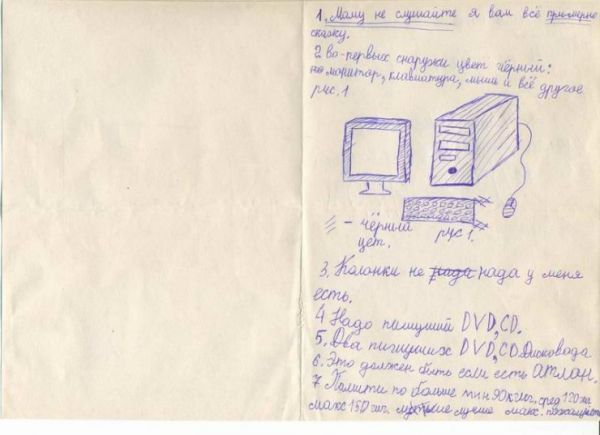 1. Маму не слушайте я вам всё примерно
скажу.
2 во-первых снаружи цвет чёрный:
монитор, клавиатура, мышь и всё другое
рис. 1
– чёрный
цвет.
рис 1.
3. Колонки не нада у меня
есть.
4 Надо пишущий DVD, CD.
5. Два пишущих DVD, CD. Дисковода
6. Это должен быть если есть атлан.
7. Памяти по больше мин 90 к гиг. сред 120 гиг
макс 150 гиг. лучше макс. пожалуйста